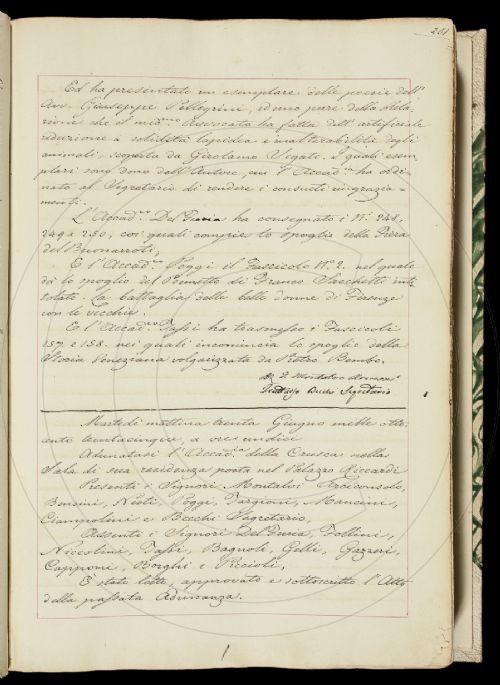 201
Ed ha presentato un esemplare delle poesie dell'
Avv. Giuseppe Pellegrini, ed uno pure della Rela
zione che il med.mo Avvocato ha fatta dell'artificiale
riduzione a solidità lapidea e inalterabilità degli
animali, scoperta da Girolamo Segato. I quali esem
plari sono dono dell'Autore, cui l'Accad.a ha ordi
nato al Segretario di rendere i consueti ringrazia
menti.
L'Accad.co Del Furia ha consegnato i N.i 248,
249 e 250, coi quali compie lo spoglio della Fiera
del Buonarroti,
E l'Accad.co Poggi il Fascicolo N.o 2. nel quale
dà lo spoglio del Poemetto di Franco Sacchetti inti
tolato: la battaglia delle belle donne di Firenze
con le vecchie.
E l'Accad.co Tassi ha trasmesso i Fascicoli
157 e 158. nei quali incomincia lo spoglio della
Storia Veneziana volgarizzata da Pietro Bembo.
Montalvo
Fruttuoso Becchi Segretario
Martedì mattina trenta Giugno mille otto
cento trentacinque, a ore undici
Adunatasi l'Accad.a della Crusca nella
Sala di sua residenza posta nel Palazzo Riccardi
Presenti i Signori Montalvi Arciconsolo,
Bencini, Nesti, Poggi, Targioni, Mancini,
Ciampolini e Becchi Segretario,
Assenti i Signori Del Furia, Follini,
Niccolini, Tassi, Bagnoli, Gelli, Gazzeri,
Capponi, Borghi e Piccioli,
È stato letto, approvato e sottoscritto l'Atto
della passata Adunanza.